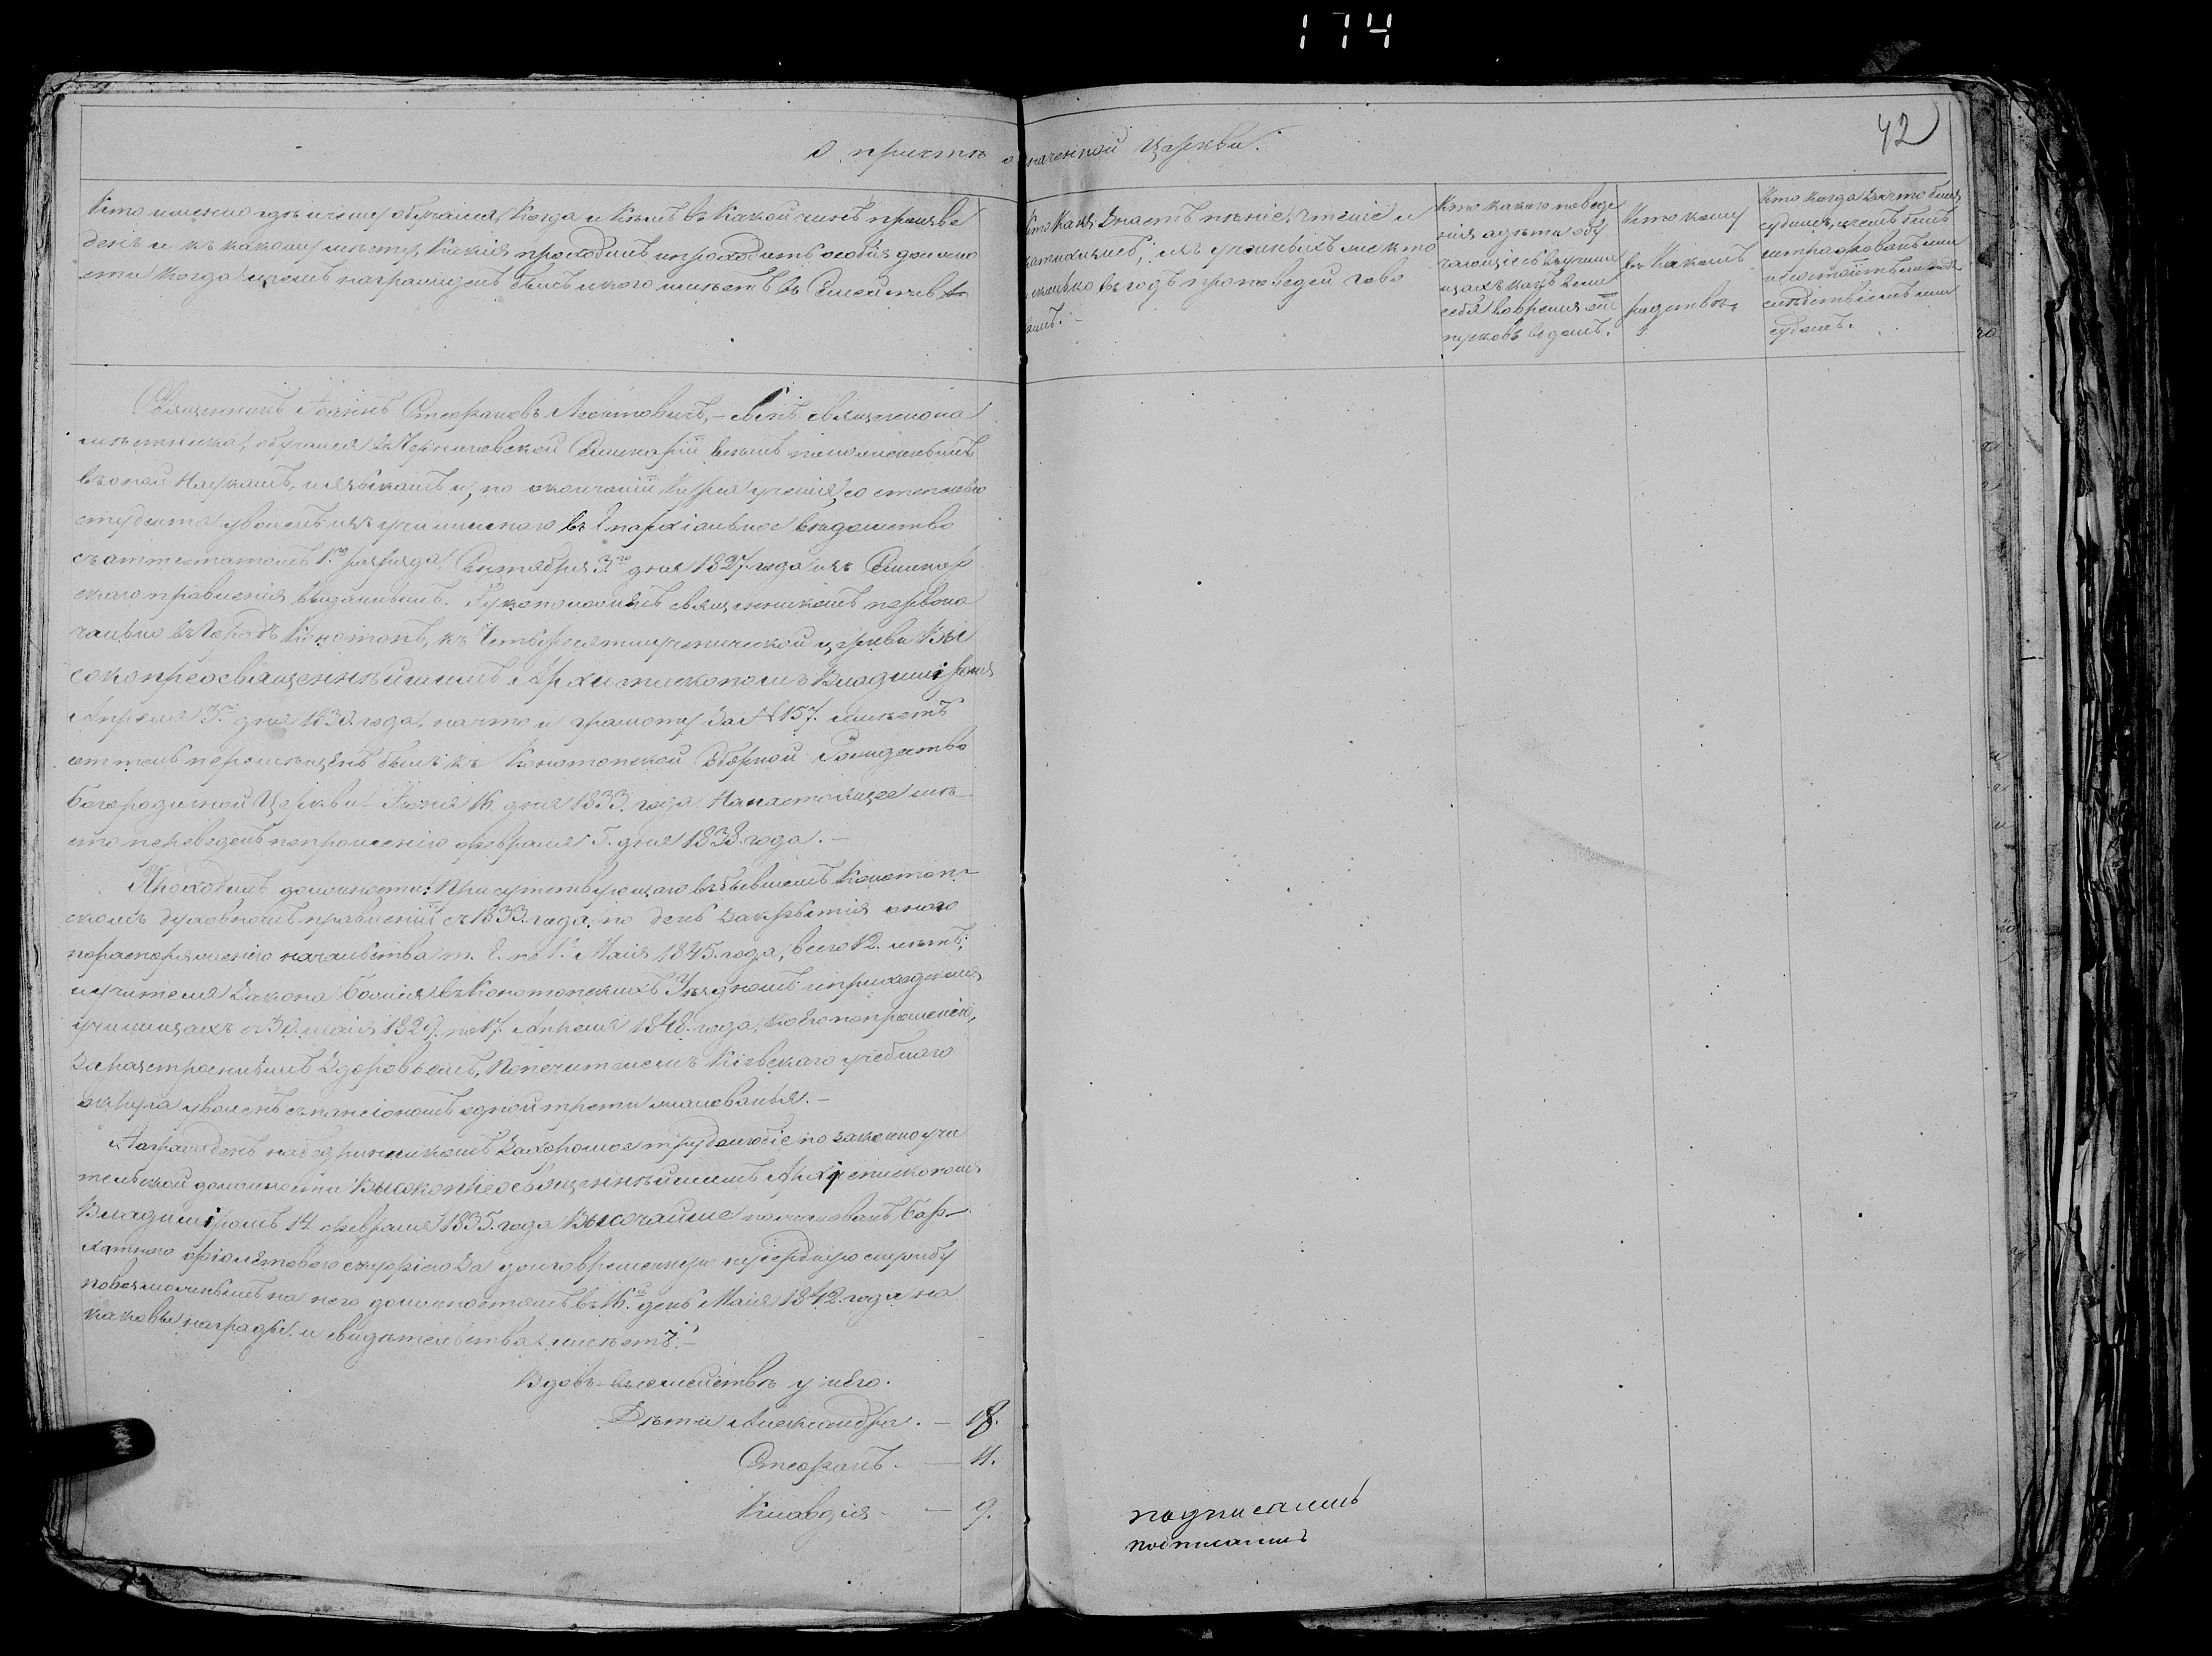 174
42
О причтѣ означенной Церкви.
Кто именно гдѣ и чему обучался, Когда и Кѣмъ въ Какой чинъ произве
денъ и къ какому мѣсту, Какія проходилъ и проходитъ особыя должно
сти Когда и чемъ награжденъ былъ и кого имѣетъ въ Семействѣ
Кто Какъ Знаетъ пѣніе, чтеніе и
катихизисъ; изъ ученыхъ же кто
сколько въ годъ проповѣдей гово
рилъ.
Кто какого поведе
нія а дѣти обу
чающіеся въ учили
щахъ какъ вели
себя во время от
пусковъ въ домъ.
Кто кому
въ Какомъ
родствѣ.
Кто когда За что былъ
судимъ, и чемъ былъ
штрафованъ или
и состоитъ подъ
слѣдствіемъ или
судомъ.
Священникъ Іоаннъ Стефановъ Леонтовичъ, – сынъ священнона
мѣстника, обучался въ Черниговской Семинаріи всѣмъ положеннымъ
въ оной Наукамъ, и языкамъ и, по окончаніи Курса ученія, со степенью
студента уволенъ изъ училищнаго въ Епархіальное вѣдомство
съ аттестатомъ 1.го разряда Сентября 3.го дня 1827 года изъ Семинар
скаго правленія выданнымъ. Рукоположенъ священникомъ первона
чально въ Городъ Конотопъ, къ Четыредесятимученической церкви Вы
сокопреосвященнѣйшимъ Архіепископомъ Владиміромъ
Апреля 13. дня 1830. года, на что и грамоту За № 157. имѣетъ
оттоль перемѣщенъ былъ къ Конотопской Соборной Рождество
Богородичной Церкви Іюня 16. дня 1833. года На настоящее мѣ
сто переведенъ по прошенію февраля 5. дня 1838. года. –
Проходилъ должности: Присутствующаго въ бывшемъ Конотоп-
скомъ духовномъ правленіи съ 1833. года, по день закрытія онаго
по распоряженію начальства т. е. по 1.е Маія 1845. года, всего 12. лѣтъ;
и учителя Закона Божія въ Конотопскихъ Уѣздномъ и приходскомъ
училищахъ съ 30. маія 1829. по 17. Апреля 1848. года, кое по прошенію,
За разстроеннымъ Здоровьемъ, Попечителемъ Кіевскаго учебнаго
округа уволенъ съ пансіономъ одной трети жалованья. –
Награжденъ набедренникомъ За хорошое трудолюбіе по законоучи
тельской должности Высокопреосвященнѣйшимъ Архіепископомъ
Владиміромъ 14 февраля 1835. года Высочайше пожалованъ бар-
хатною фіолетовою скуфіею За долговременную и усердную службу
по возложеннымъ на него должностямъ въ 16.й день Маія 1842. года на
каковыя награды и свидѣтельства имѣетъ. –
Вдовъ въ семействѣ у него.
Дѣти Александра. – 18.
Стефанъ. – 11.
Клавдія – 9.
подписались
подписались